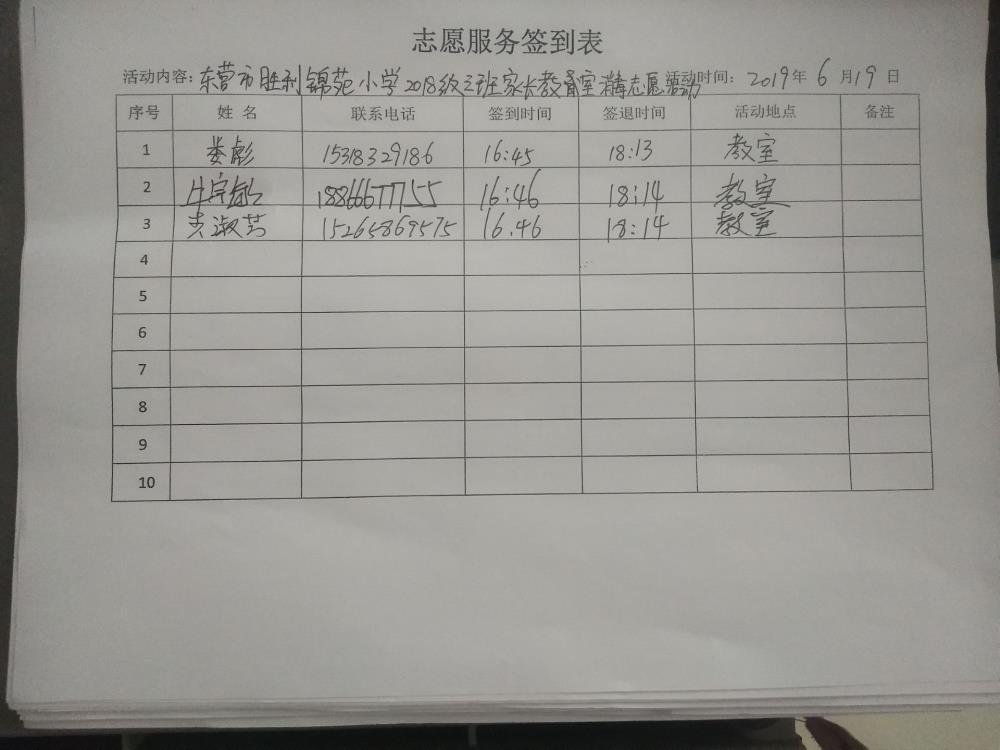 志愿服务签到表
活动内容：东营市胜利锦苑小学2018级三班家长教育室清志愿活动 活动时间：2019年6月19日
序号 姓名 联系电话 签到时间 签退时间 活动地点 备注
1 娄彪 15318329186 16:45 18:13 教室
2 牛宗敏 18866677755 16:46 18:14 教室
3 淑芳 15265869575 16.46 18:14 教室
4
5
6
7
8
9
10